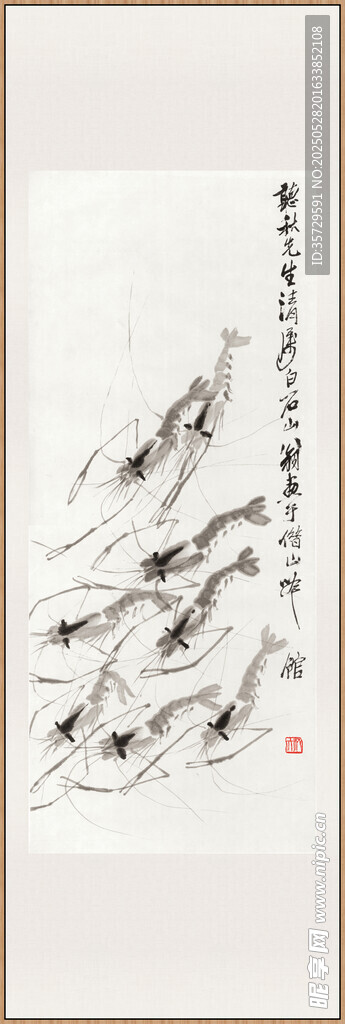 聽秋先生清屬白石山翁畫于借山吟
館
ID:35729591 NO:20250528201633852108
昵享网 www.nipic.cn